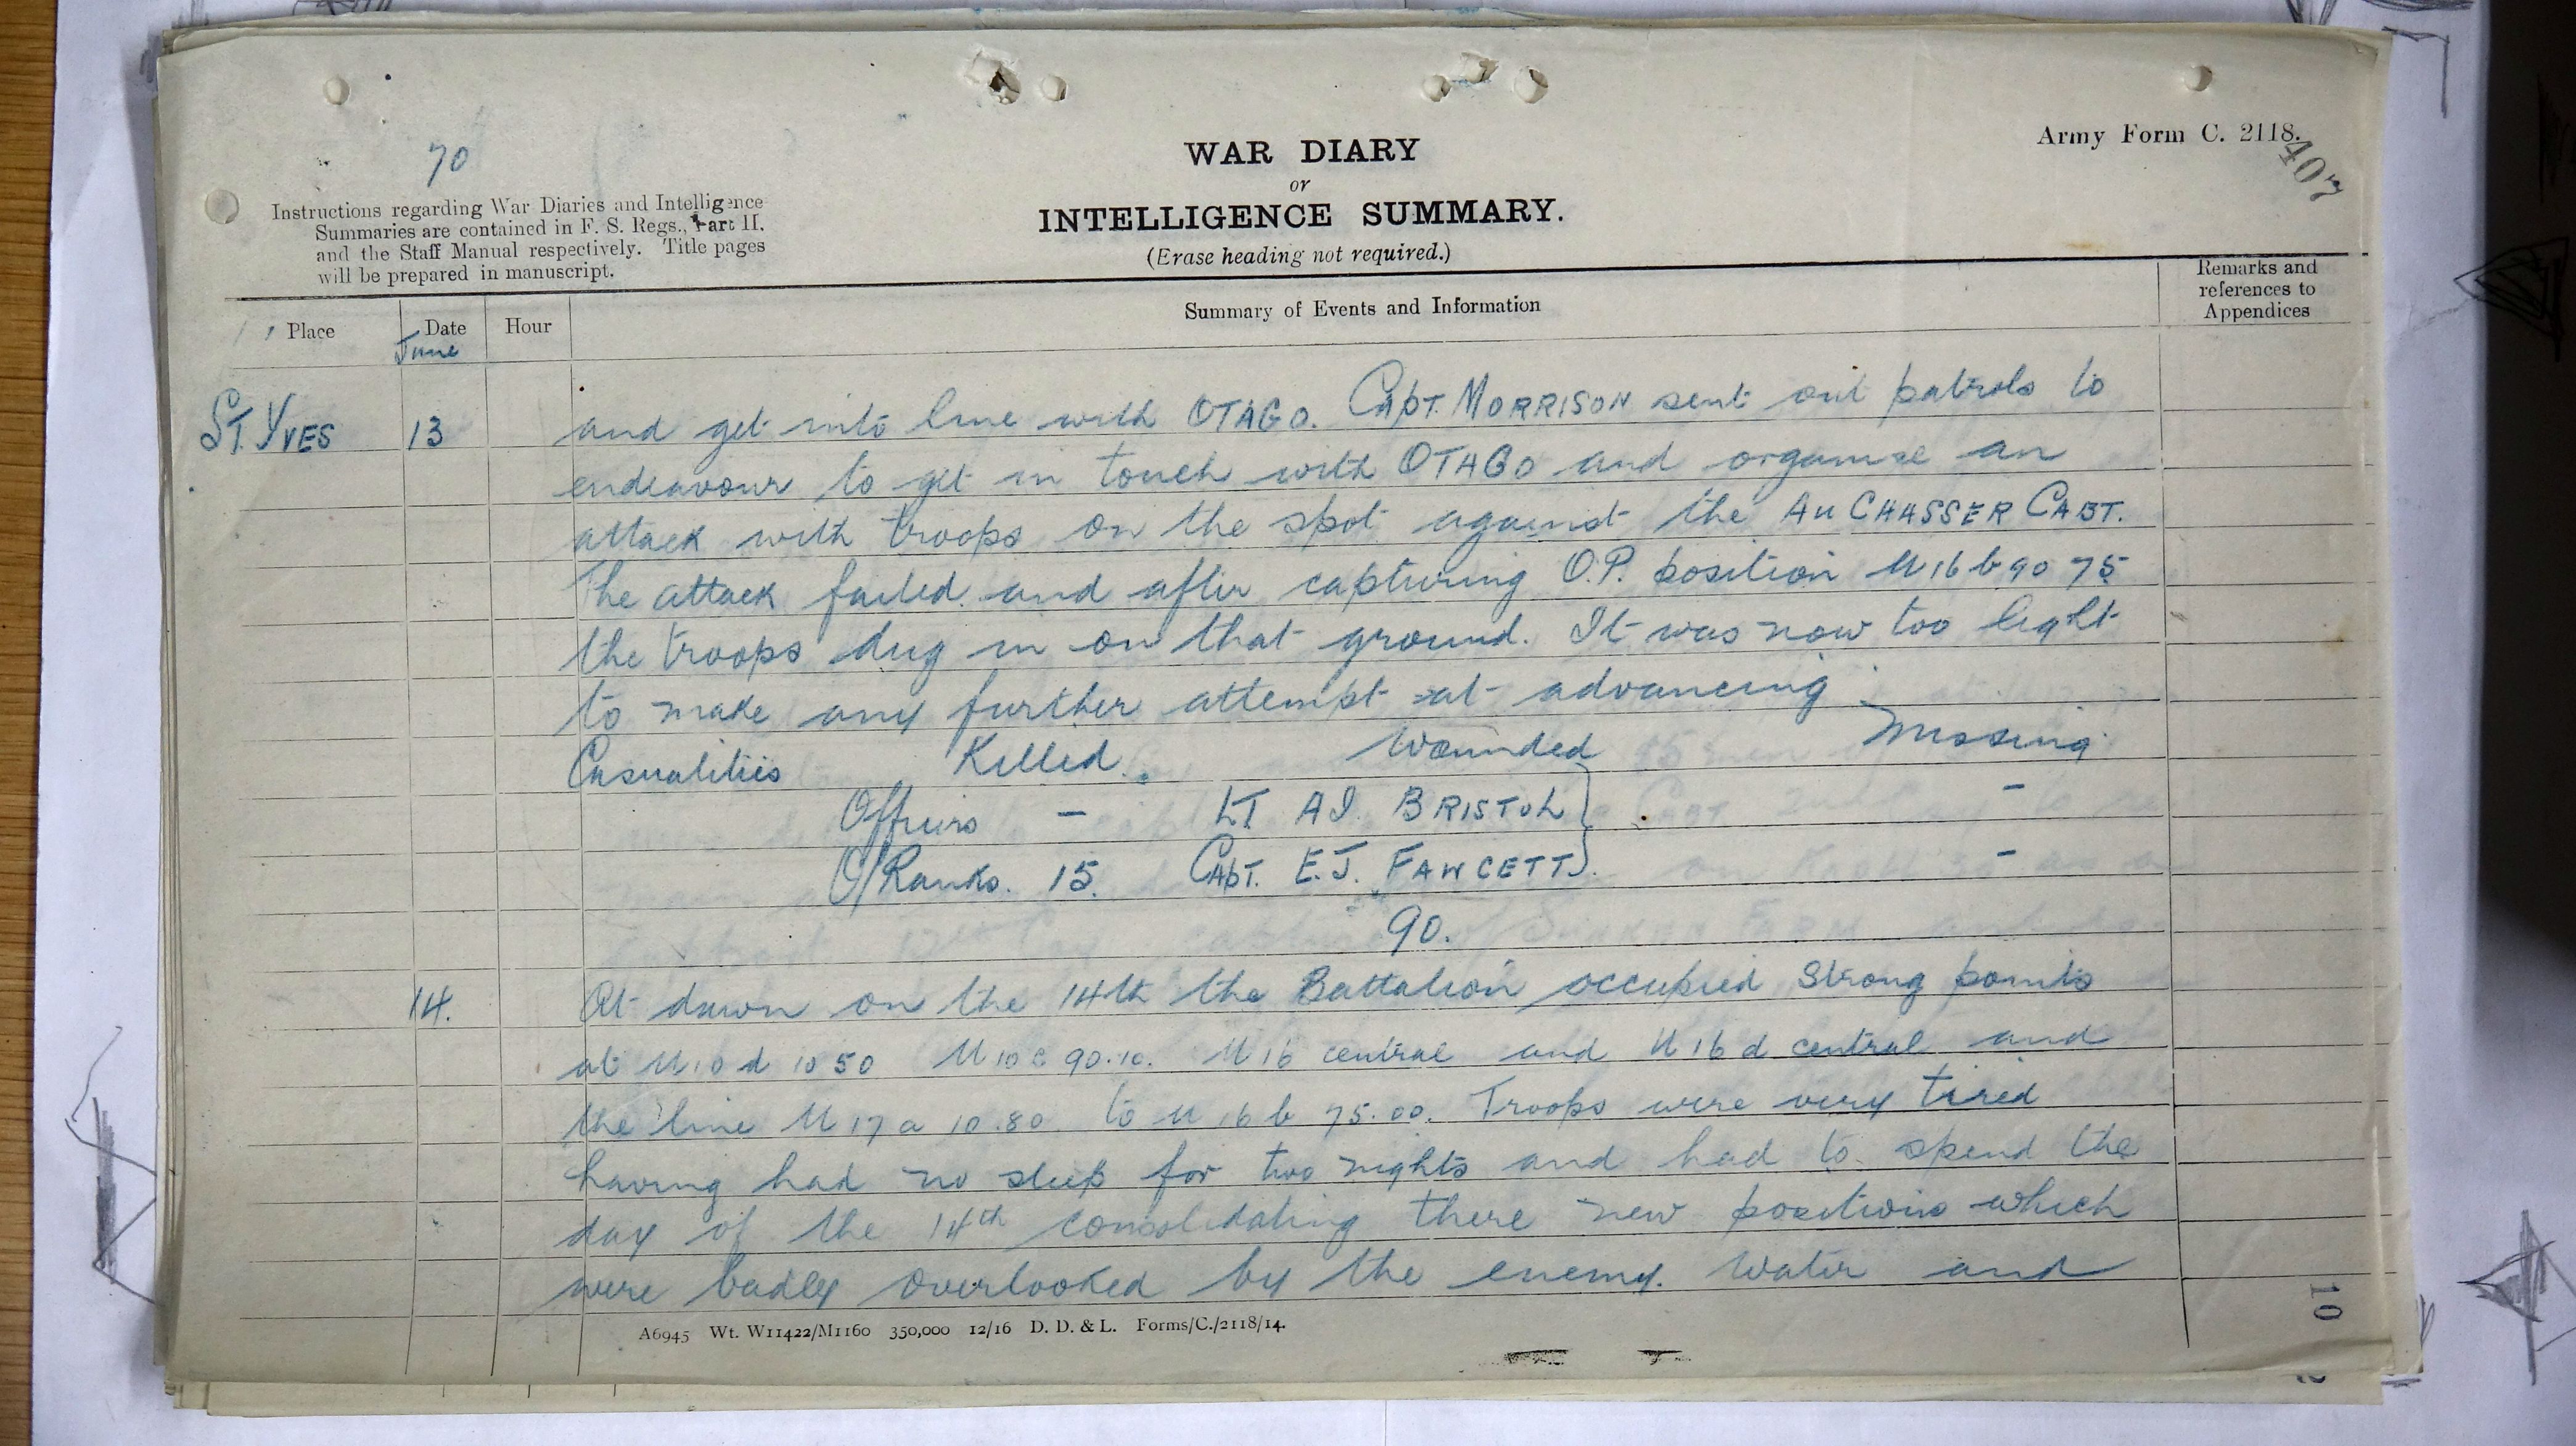 70
WAR DIARY
or
INTELLIGENCE SUMMARY.
(Erase heading not required.)
Army Form C. 2118.
407
Instructions regarding War Diaries and Intelligence
Summaries are contained in F. S. Regs., Part II.
and the Staff Manual respectively. Title pages
will be prepared in manuscript.
Place Date Hour Summary of Events and Information Remarks and
references to
Appendices
June
ST. YVES 13 and get into line with OTAGO. CAPT. MORRISON sent out patrols to
endeavour to get in touch with OTAGO and organize an
attack with troops on the spot against the AU CHASSER CABT.
The attack failed and after capturing O.P. position U 16 b 90 75
the troops dug in on that ground. It was now too light
to make any further attempt at advancing.
Casualities Killed. Wounded Missing
Officers - LT A.I. BRISTOL -
O/Ranks. 15. CAPT. E.J. FAWCETT. -
90.
14. At dawn on the 14th the Battalion occupied Strong points
at U 10 d 10 50 U 10 c 90.10. U 16 central and U 16 d central and
the line U 17 a 10.80 to U 16 b 75.00. Troops were very tired
having had no sleep for two nights and had to spend the
day of the 14th consolidating there new positions which
were badly overlooked by the enemy. Water and
A6945 Wt. W11422/M1160 350,000 12/16 D. D. & L. Forms/C./2118/14.
10